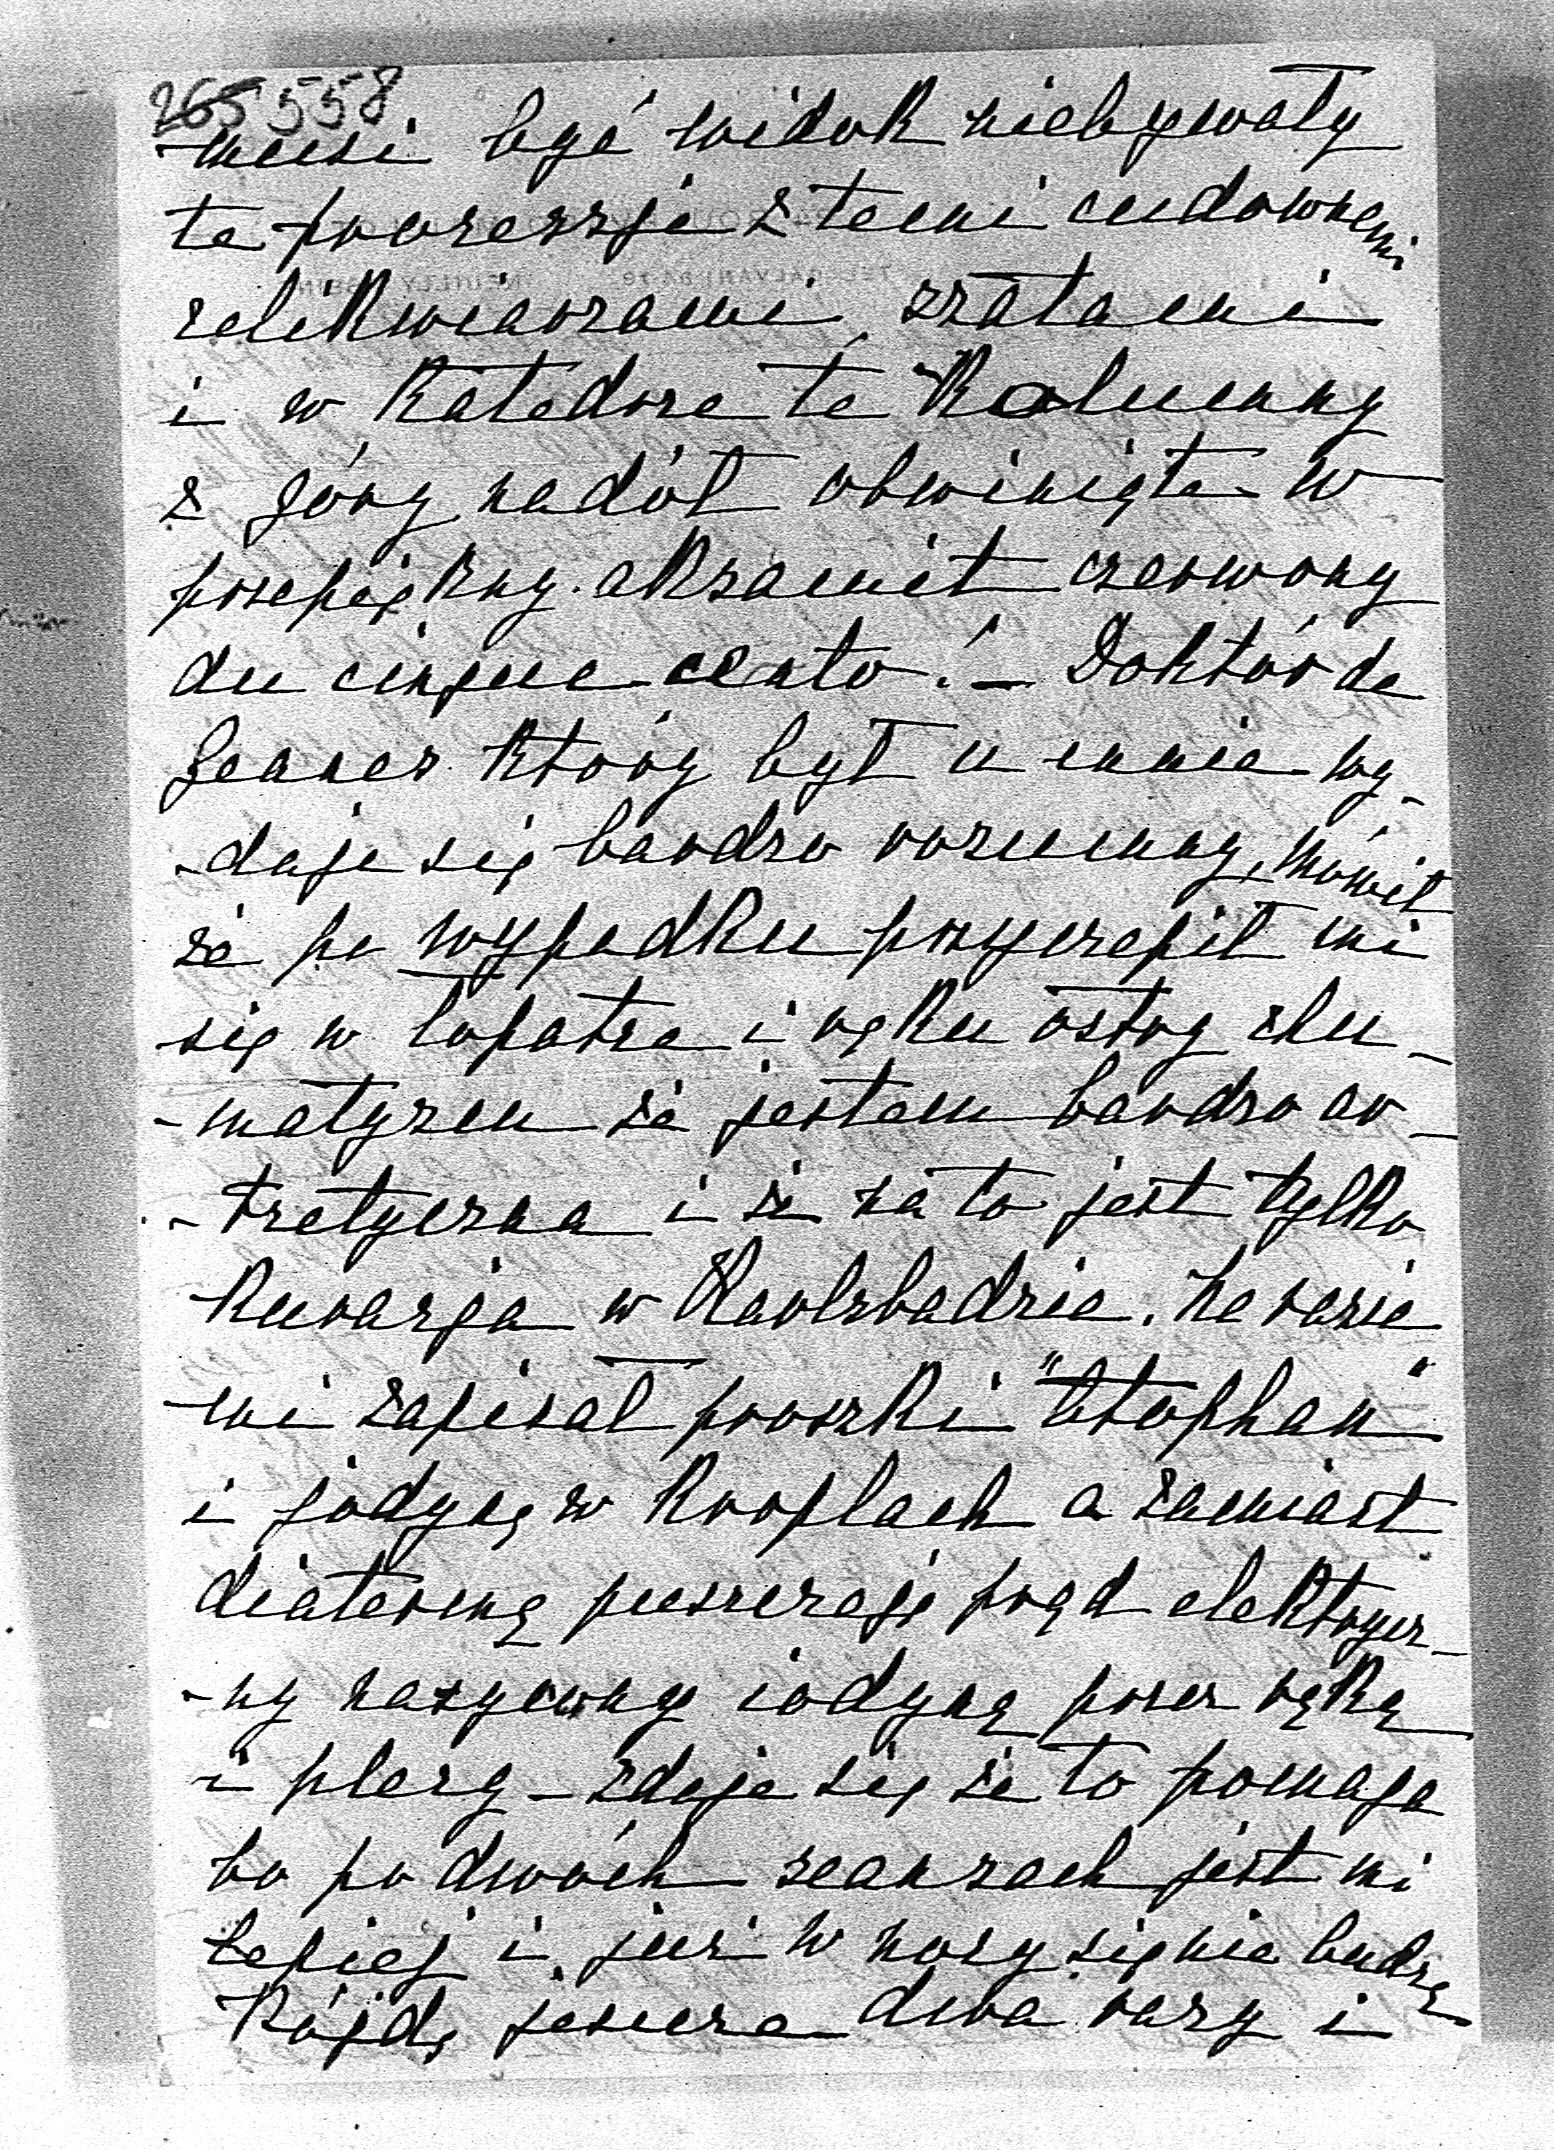 265 558
musi być widok niebywały
te procesje z temi cudownemi
relikwiarzami, szatami
i w Katedrze te Kolumny
z góry nadół obwinięte w
przepiękny aksamit czerwony
du cinque cento! — Doktór de
który był u mnie wy-
-daje się bardzo rozumny, mówił
że po wypadku przyczepił mi
się w łopatce i ręku ostry rhu-
-matyzm że jestem bardzo ar-
-tretyczna i że na to jest tylko
Kuracja w Karlsbadzie. Na razie
mi zapisał proszki "Atophan"
i jodynę w Kroplach a zamiast
diatermę puszczają prąd elektrycz-
-ny nazywany iodyną przez rękę
i plecy – zdaje się że to pomaga
bo po dwóch seansach jest mi
lepiej i już w nocy się nie budzę
Pójdę jeszcze dwa razy i